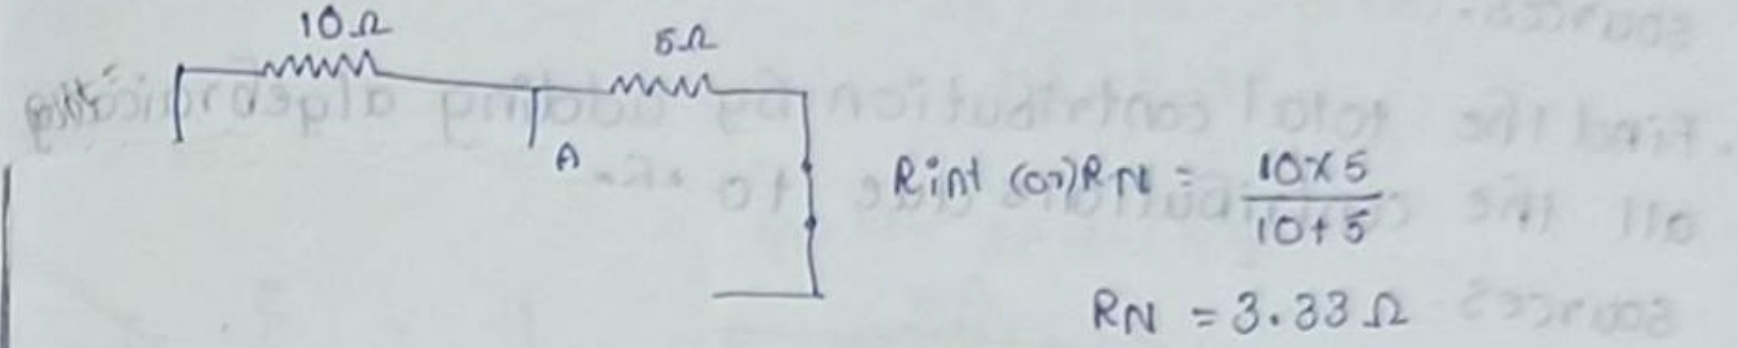 10Ω
5Ω
A
Rint (or) RN = 10×5
10+5
RN = 3.33 Ω